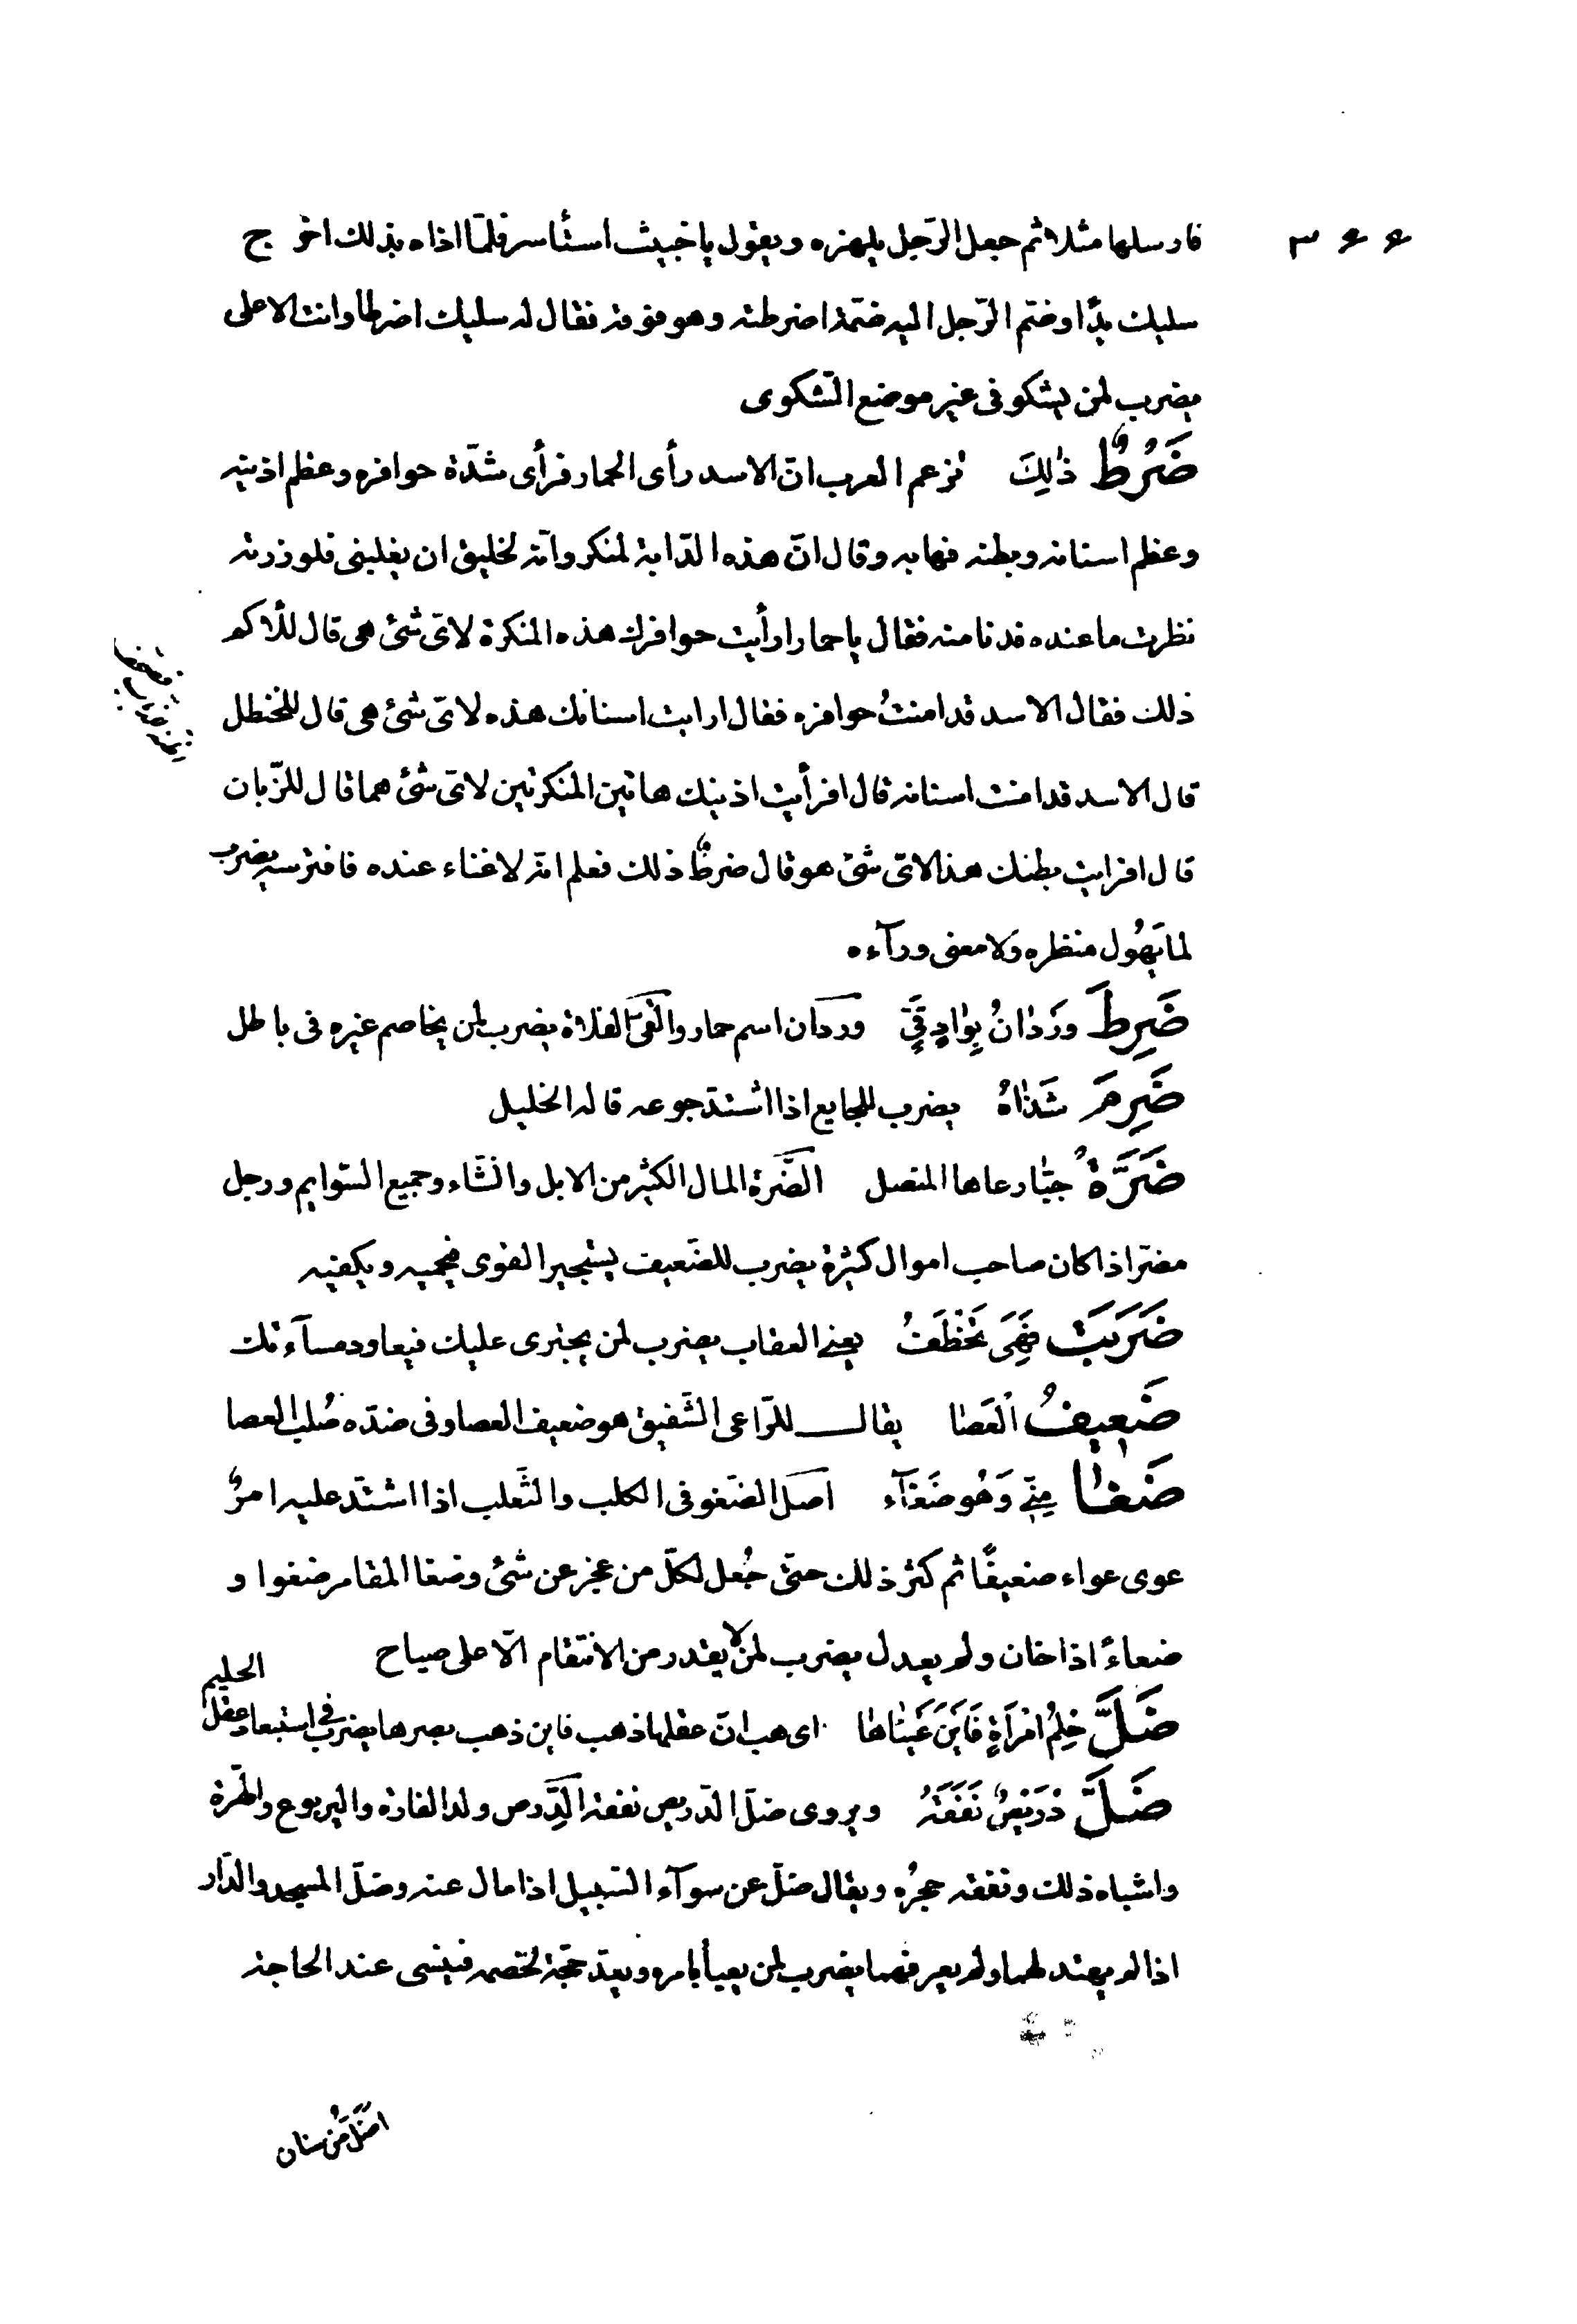 ٣٦٦
فارسلها مثلا ثم جعل الرّجل يلهزه ويقول يا خبيث استأسر فلمّا اذاه بذلك اخرج
سليك يدًا وضمّ الرّجل اليه ضمّة اضرطته وهو فوقه فقال له سليك اضرطا وانت الاعلى
يضرب لمن يشكو فى غير موضع التّشكوى
ضَرُطٌ ذٰلِكَ تزعم العرب انّ الاسد رأى الحمار فرأى شدّة حوافره وعظم اذنيه
وعظم اسنانه وبطنه فهابه وقال انّ هذه الدّابة لمنكر وانّه لخليق ان يغلبنى فلو زرته
نظرت ما عنده فدنا منه فقال يا حمار ارأيت حوافرك هذه المنكرة لاىّ شئ هى قال للأكم
ذلك فقال الاسد قد امنتُ حوافره فقال ارايت اسنانك هذه لاىّ شئ هى قال للحنظل
قال الاسد قد امنت اسنانه قال افرأيت اذنيك هاتين المنكرتين لاىّ شئ هما قال للزّبان
قال افرايت بطنك هذا لاىّ شئ هو قال ضرطٌ ذلك فعلم انّه لا غناء عنده فافترسه يضرب
لما يَهُول منظره ولا معنى ورآءه
ضَرِطَ وَرَدٰانُ بِوٰادٍ قَيٍّ وردان اسم حمار والقىّ الفلاة يضرب لمن يخاصم غيره فى باطل
ضَرِمَ شَذٰاهُ يضرب للجايع اذا اشتدّ جوعه قاله الخليل
ضَرَّةٌ جبّا رعاها المنصل الضَّرة المال الكثير من الابل والشّاء وجميع السّوايم ورجل
مضرّ اذا كان صاحب اموال كثيرة يضرب للضّعيف يستجير القوى فيحميه ويكفيه
ضَرَبَتْ فَهِىَ تَخْطَفُ يعنى العقاب يضرب لمن يجترى عليك فيعاود مسآءتك
ضَعِيفُ الْعَصٰا يقال للرّاعى الشّفيق هو ضعيف العصا وفى ضدّه صُلب العصا
ضَغٰا مِنّى وَهُو ضَغآء اصل الضّغو فى الكلب والثّعلب اذا اشتدّ عليه امرٌ
عوى عواء ضعيفًا ثم كثر ذلك حتّى جُعل لكلّ من عجز عن شئ وضغا المقامر ضغوا و
ضغاءً اذا خان ولم يعدل يضرب لمن لا يقدر من الانتقام الّا على صياح
ضَلَّ حِلمُ امْرَأةٍ فَايْنَ عَيْنٰاهٰا اى هب انّ عقلها ذهب فاين ذهب بصرها يضرب فى استبعاد عقل الحليم
ضَلَّ دُرَيْصٌ نَفَقَهُ ويروى ضلّ الدّريص نفقه الدِّرص ولد الفارة واليربوع والهرّة
واشباه ذلك ونفقه جحرُه ويقال ضلّ عن سوآء السّبيل اذا مال عنه وضلّ المسجد والدّار
اذا لم يهتد لهما ولم يعرفهما يضرب لمن يعيأ بامره ويعدّ حجّة لخصمه فينسى عند الحاجة
اضلّ من سنان